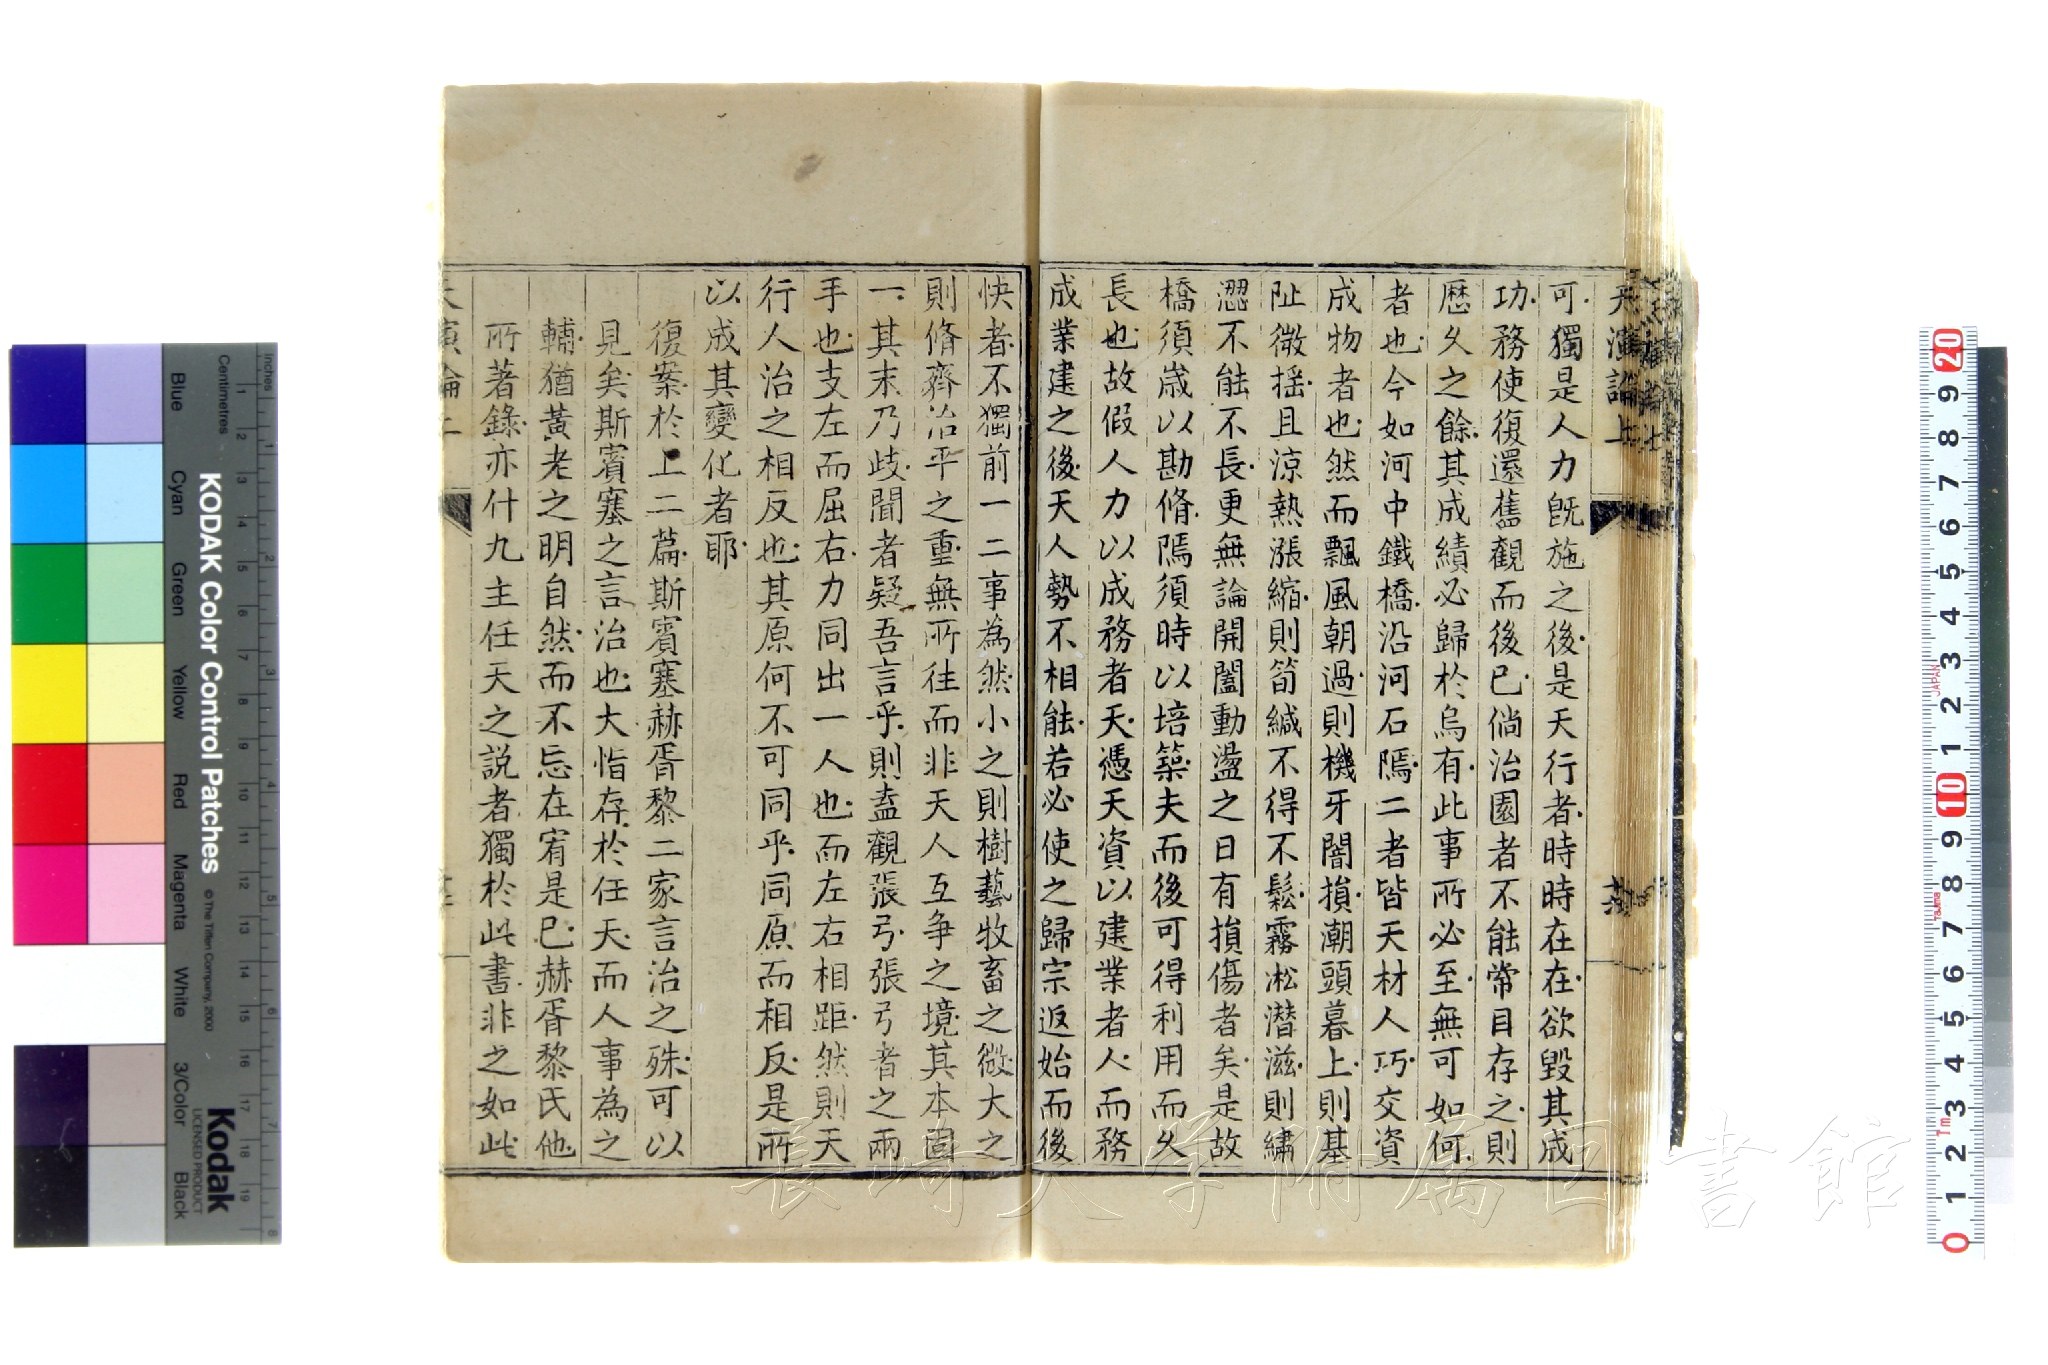 天演論上
可獨是人力旣施之後是天行者時時在在欲毀其成
功務使復還舊觀而後已倘治園者不能常目存之則
歷久之餘其成績必歸於烏有此事所必至無可如何
者也今如河中鐵橋沿河石隖二者皆天材人巧交資
成物者也然而飄風朝過則機牙闇損潮頭暮上則基
阯微摇且涼熱漲縮則筍緘不得不鬆霧淞潛滋則繡
澀不能不長更無論開闔動盪之日有損傷者矣是故
橋須歲以勘脩隖須時以培築夫而後可得利用而久
長也故假人力以成務者天憑天資以建業者人而務
成業建之後天人勢不相能若必使之歸宗返始而後
快者不獨前一二事為然小之則樹藝牧畜之微大之
則脩齊治平之重無所往而非天人互争之境其本固
一其末乃歧聞者疑吾言乎則盍觀張弓張弓者之兩
手也支左而屈右力同出一人也而左右相距然則天
行人治之相反也其原何不可同乎同原而相反是所
以成其變化者耶
復案於上二篇斯賓塞赫胥黎二家言治之殊可以
見矣斯賓塞之言治也大恉存於任天而人事為之
輔猶黃老之明自然而不忘在宥是已赫胥黎氏他
所著錄亦什九主任天之説者獨於此書非之如此
天演論上
長崎大学附属図書館
KODAK Color Control Patches
© The Tiffen Company, 2000
Kodak
LICENSED PRODUCT
Blue
Cyan
Green
Yellow
Red
Magenta
White
3/Color
Black
Centimetres
Inches
1 2 3 4 5 6 7 8 9 10 11 12 13 14 15 16 17 18 19
1 2 3 4 5 6 7 8
20
9
8
7
6
5
4
3
2
1
10
9
8
7
6
5
4
3
2
1
0
JAPAN
Tajima